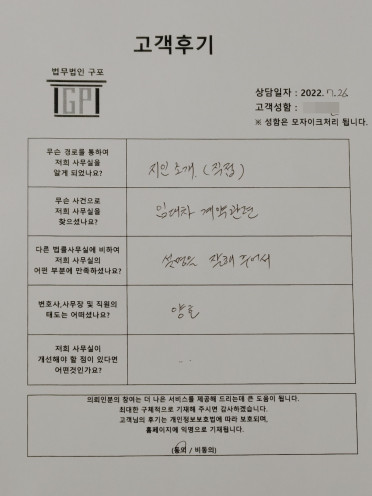 고객후기
법무법인 구포
GP
상담일자 : 2022. 7. 26
고객성함 :
※ 성함은 모자이크처리 됩니다.
무슨 경로를 통하여
저희 사무실을
알게 되었나요?
지인소개. (직접)
무슨 사건으로
저희 사무실을
찾으셨나요?
임대차 계약관련
다른 법률사무실에 비하여
저희 사무실의
어떤 부분에 만족하셨나요?
설명을 잘해주어서
변호사,사무장 및 직원의
태도는 어떠셨나요?
양호
저희 사무실이
개선해야 할 점이 있다면
어떤것인가요?
..
의뢰인분의 참여는 더 나은 서비스를 제공해 드리는데 큰 도움이 됩니다.
최대한 구체적으로 기재해 주시면 감사하겠습니다.
고객님의 후기는 개인정보보호법에 따라 보호되며,
홈페이지에 익명으로 기재됩니다.
(동의 / 비동의)